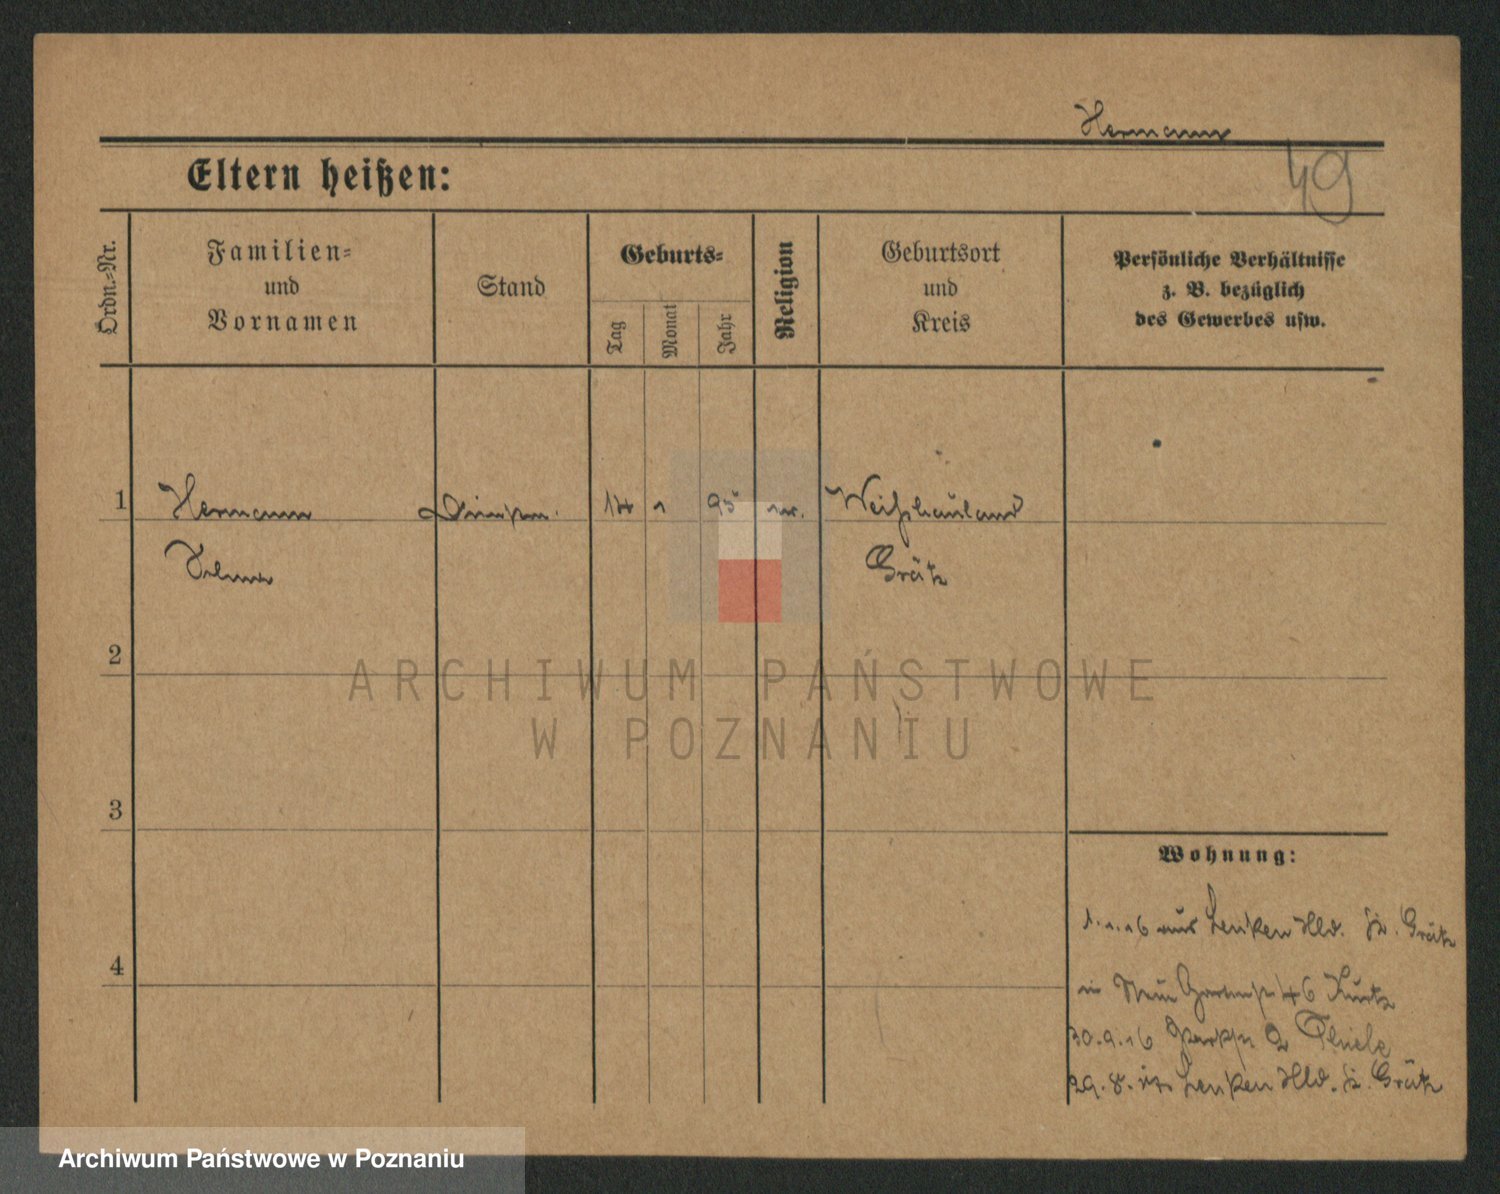 Hermann
49
Eltern heißen:
Ordn.=Nr.
Familien=
und
Vornamen
Stand
Geburts=
Tag
Monat
Jahr
Religion
Geburtsort
und
Kreis
Persönliche Verhältnisse
z. B. bezüglich
des Gewerbes usw.
1
Hermann
14
95
Weißhauland
Grätz
2
3
4
ARCHIWUM PAŃSTWOWE
W POZNANIU
Wohnung:
1.1.16 aus Lenken Hld. Kr. Grätz
in Neue Gartenstr 46 Kurtz
30.9.16 Parkstr 2 Thiele
29.8. Lenken Hld. Kr. Grätz
Archiwum Państwowe w Poznaniu